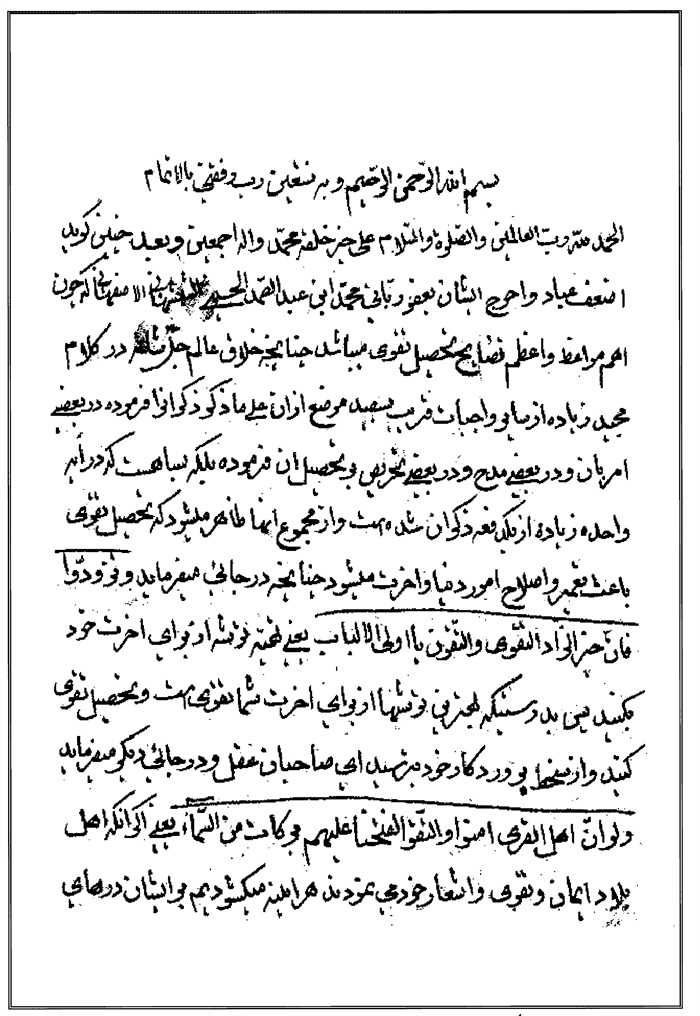 بسم الله الرحمن الرحیم و به نستعین رب وفقنی بالاتمام
الحمد لله رب العالمین والصلوة والسلام علی خیر خلقه محمد واله اجمعین وبعد چنین گوید
اضعف عباد واحوج ایشان بعفو ربانی محمد ابن عبد الصمد الحسینی الاصفهانی که چون
اهم مواعظ واعظم نصایح تحصیل تقوی میباشد چنانچه خلاق عالم جل شانه در کلام
مجید زیاده از سایر واجبات قریب بسیصد موضع ازان علی ما ذکر ذکر انرا فرموده در بعضی
امر بان و در بعضی مدح و در بعضی تحریص بر تحصیل ان فرموده بلکه بسا هست که در آیه
واحده زیاده از یکدفعه ذکر ان شده است و از مجموع اینها ظاهر میشود که تحصیل تقوی
باعث تعمیر و اصلاح امور دنیا و اخرت میشود چنانچه در جائی میفرماید وتزودوا
فان خیر الزاد التقوی واتقون یا اولی الالباب یعنی تهیه توشه از برای اخرت خود
بکنید پس بدرستیکه بهترین توشها از برای اخرت شما تقوی است و تحصیل تقوی
کنید و از سخط پروردکار خود بترسید ای صاحبان عقل و در جائی دیکر میفرماید
ولو ان اهل القری امنوا واتقوا لفتحنا علیهم برکات من السماء یعنی اکر انکه اهل
بلاد ایمان و تقوی را شعار خود می نمودند هراینه میکشودیم بر ایشان درهای